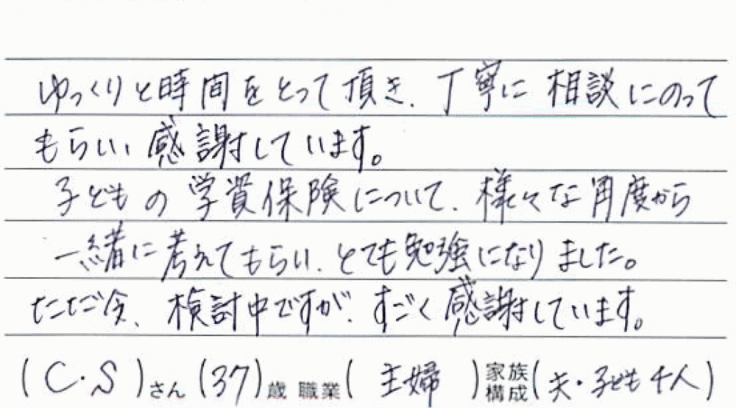 ゆっくりと時間をとって頂き、丁寧に相談にのって
もらい、感謝しています。
子どもの学資保険について、様々な角度から
一緒に考えてもらい、とても勉強になりました。
ただ今、検討中ですが、すごく感謝しています。
(C・S)さん(37)歳 職業(主婦)家族構成(夫・子ども4人)